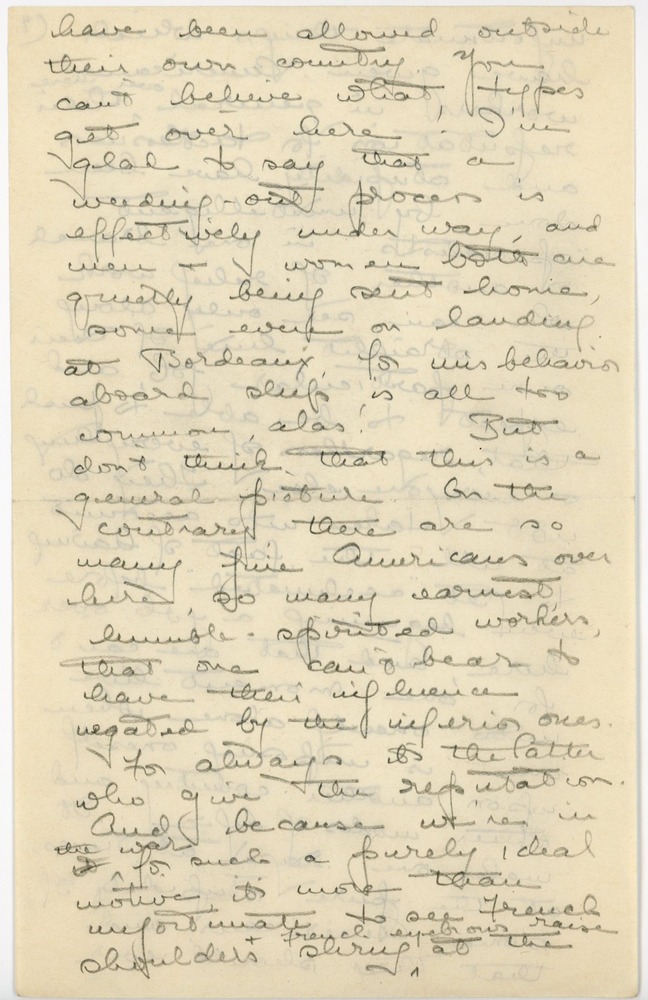 have been allowed outside
their own country. You
can't believe what types
get over here! I'm
glad to say that a
weeding-out process is
effectively under way, and
men - & women both are
quietly being sent home,
some even on landing
at Bordeaux, for misbehavior
aboard ship is all too
common, alas! But
don't think that this is a
general picture. On the
contrary there are so
many fine Americans over
here, so many earnest,
humble-spirited workers,
that one can't bear to
have their influence
negated by the inferior ones.
For always it's the latter
who give the reputation.
And because we're in
the war for such a purely ideal
motive, it's more than
unfortunate to see French
shoulders shrug + French eyebrows raise at the